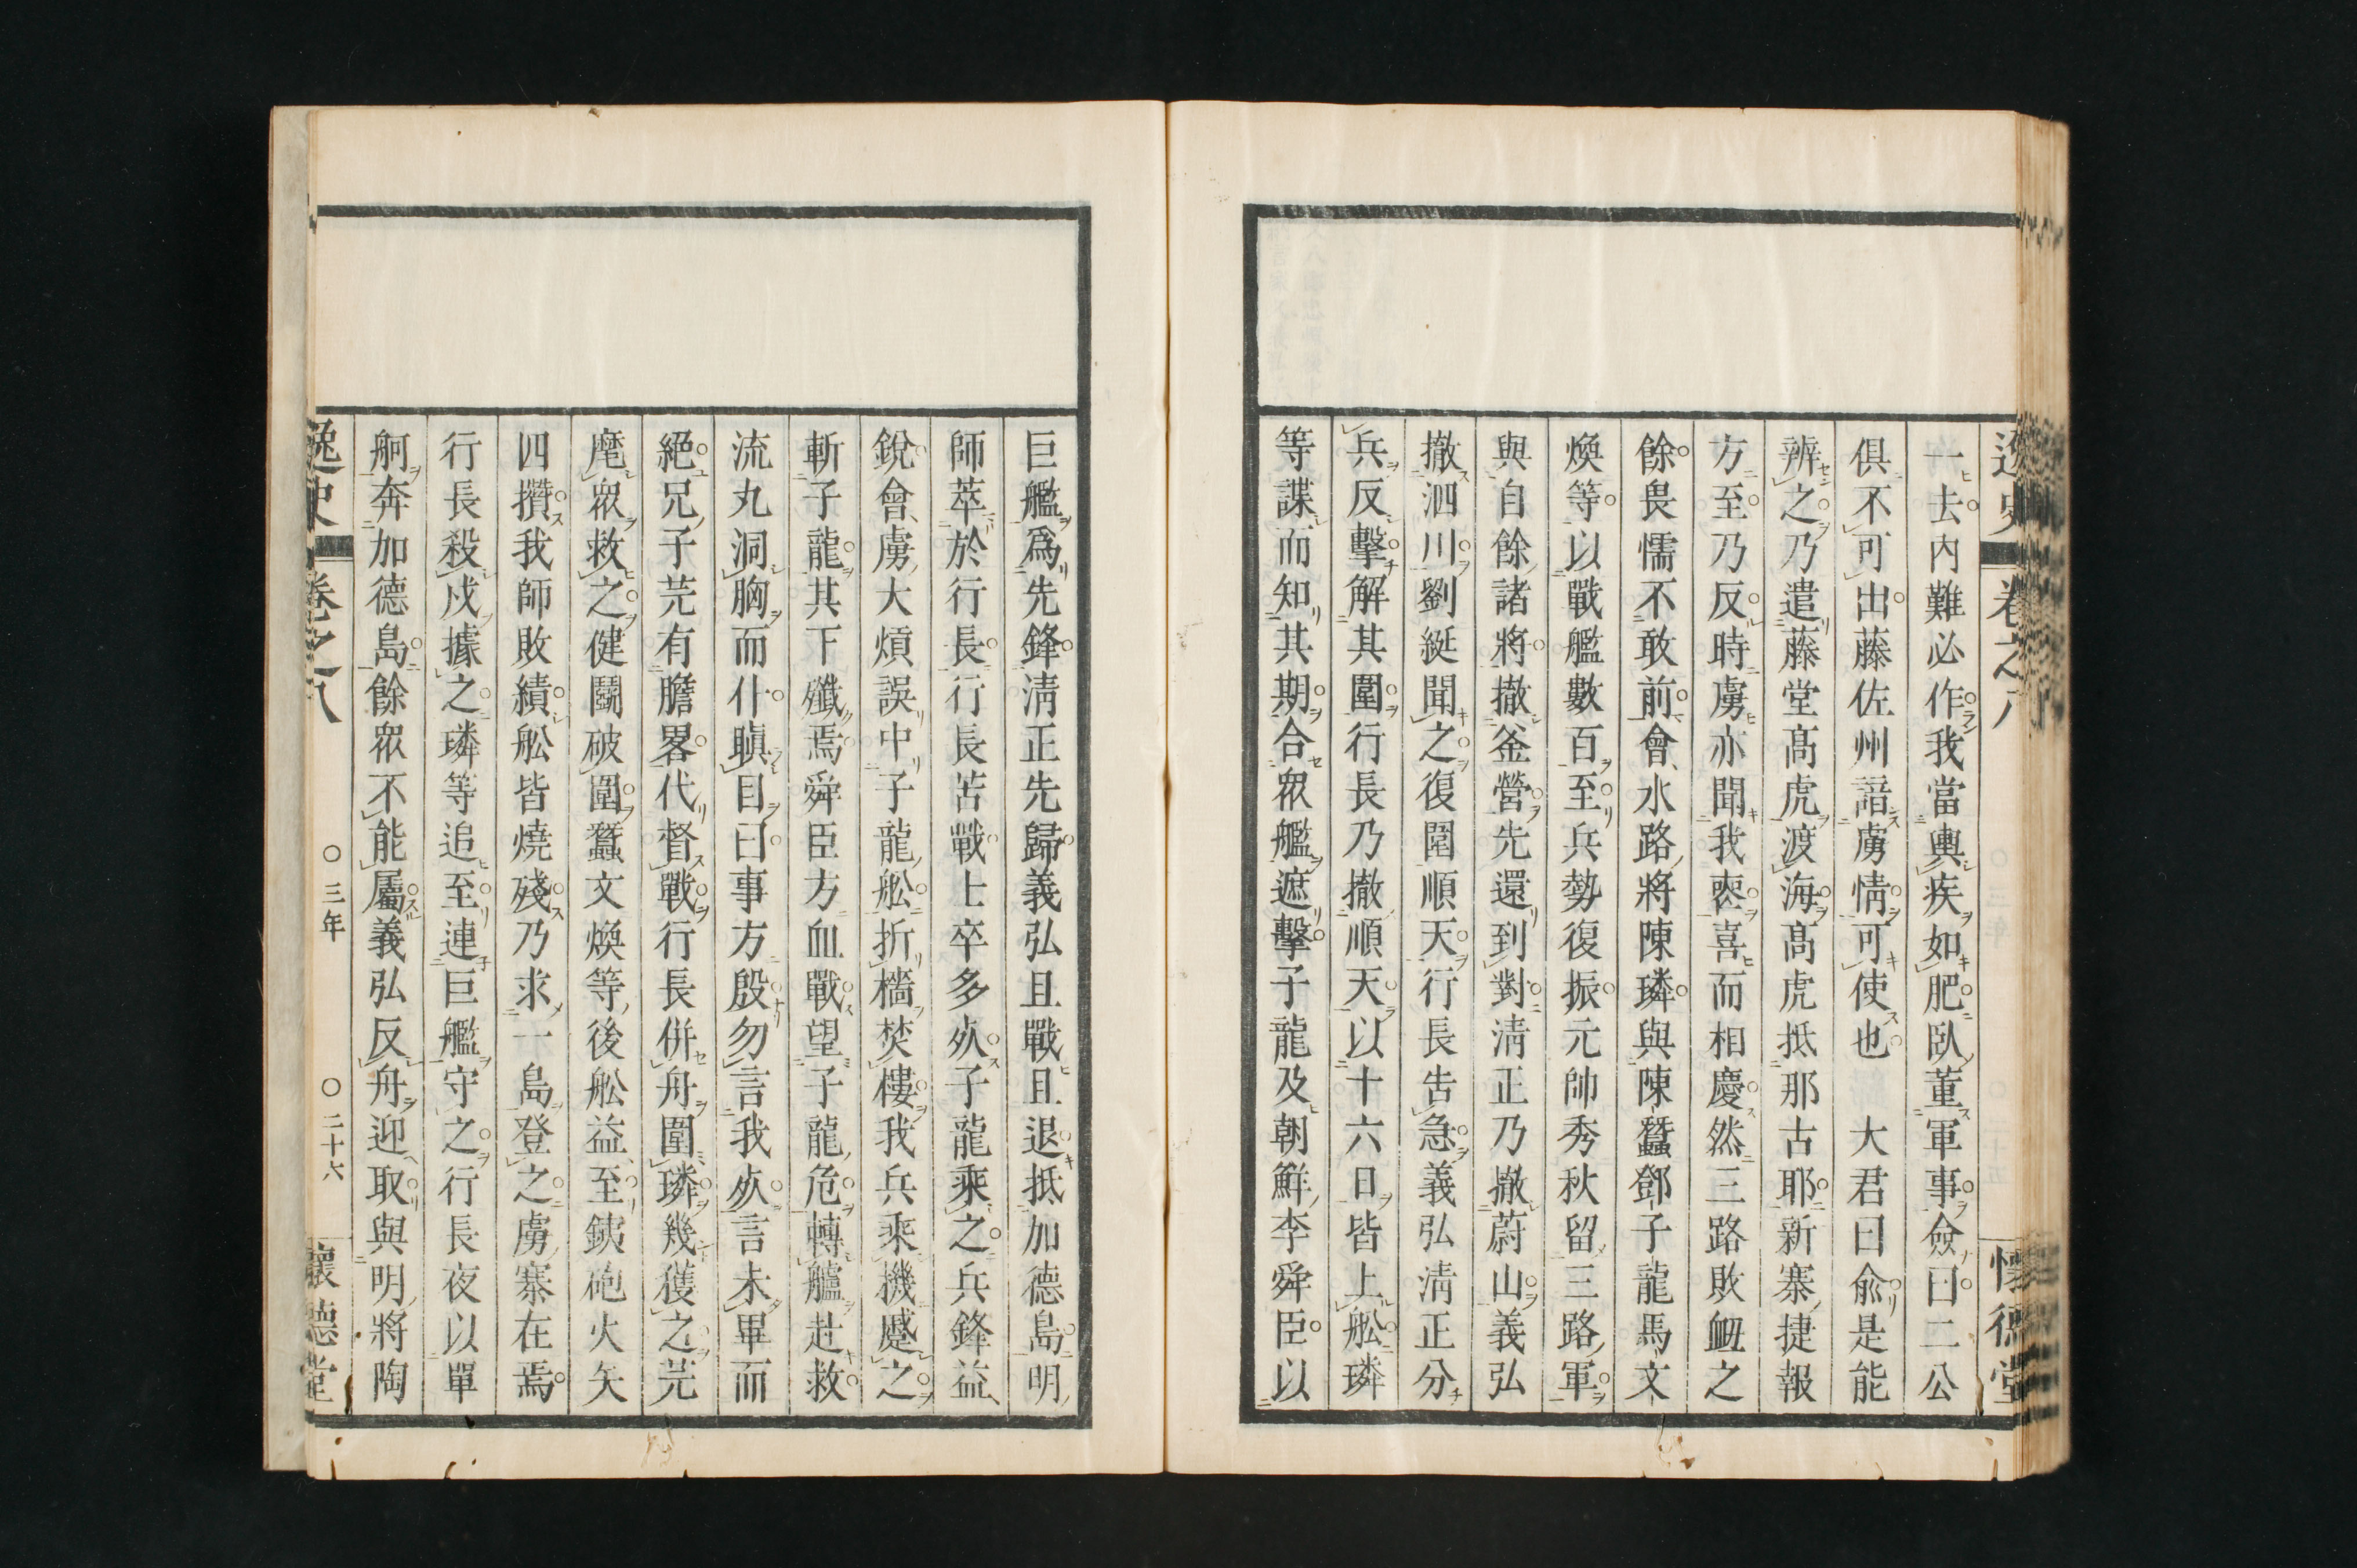 一去内難必作我當輿疾如肥臥董軍事僉曰二公
俱不可出藤佐州諳虜情可使也　大君曰兪是能
辨之乃遣藤堂髙虎渡海髙虎抵那古耶新寨捷報
方至乃反時虜亦聞我喪喜而相慶然三路敗衄之
餘畏懦不敢前會水路將陳璘與陳蠶鄧子龍馬文
煥等以戰艦數百至兵勢復振元帥秀秋留三路軍
與自餘諸將撤釜營先還到對清正乃撤蔚山義弘
撤泗川劉綎聞之復圍順天行長告急義弘清正分
兵反擊解其圍行長乃撤順天以十六日皆上舩璘
等諜而知其期合衆艦遮擊子龍及朝鮮李舜臣以
巨艦爲先鋒清正先歸義弘且戰且退抵加德島明
師萃於行長行長苦戰士卒多死子龍乘之兵鋒益
銳會虜大煩誤中子龍舩折檣焚樓我兵乘機蹙之
斬子龍其下殲焉舜臣方血戰望子龍危轉艫赴救
流丸洞胸而仆瞋目曰事方殷勿言我死言未畢而
絕兄子芫有膽畧代督戰行長併舟圍璘幾獲之芫
麾衆救之健鬪破圍蠶文煥等後舩益至銕砲火矢
四攢我師敗績舩皆燒殘乃求一島登之虜寨在焉
行長殺戍據之璘等追至連巨艦守之行長夜以單
舸奔加德島餘衆不能屬義弘反舟迎取與明將陶
逸史　卷之八　○三年　○二十六　懷德堂